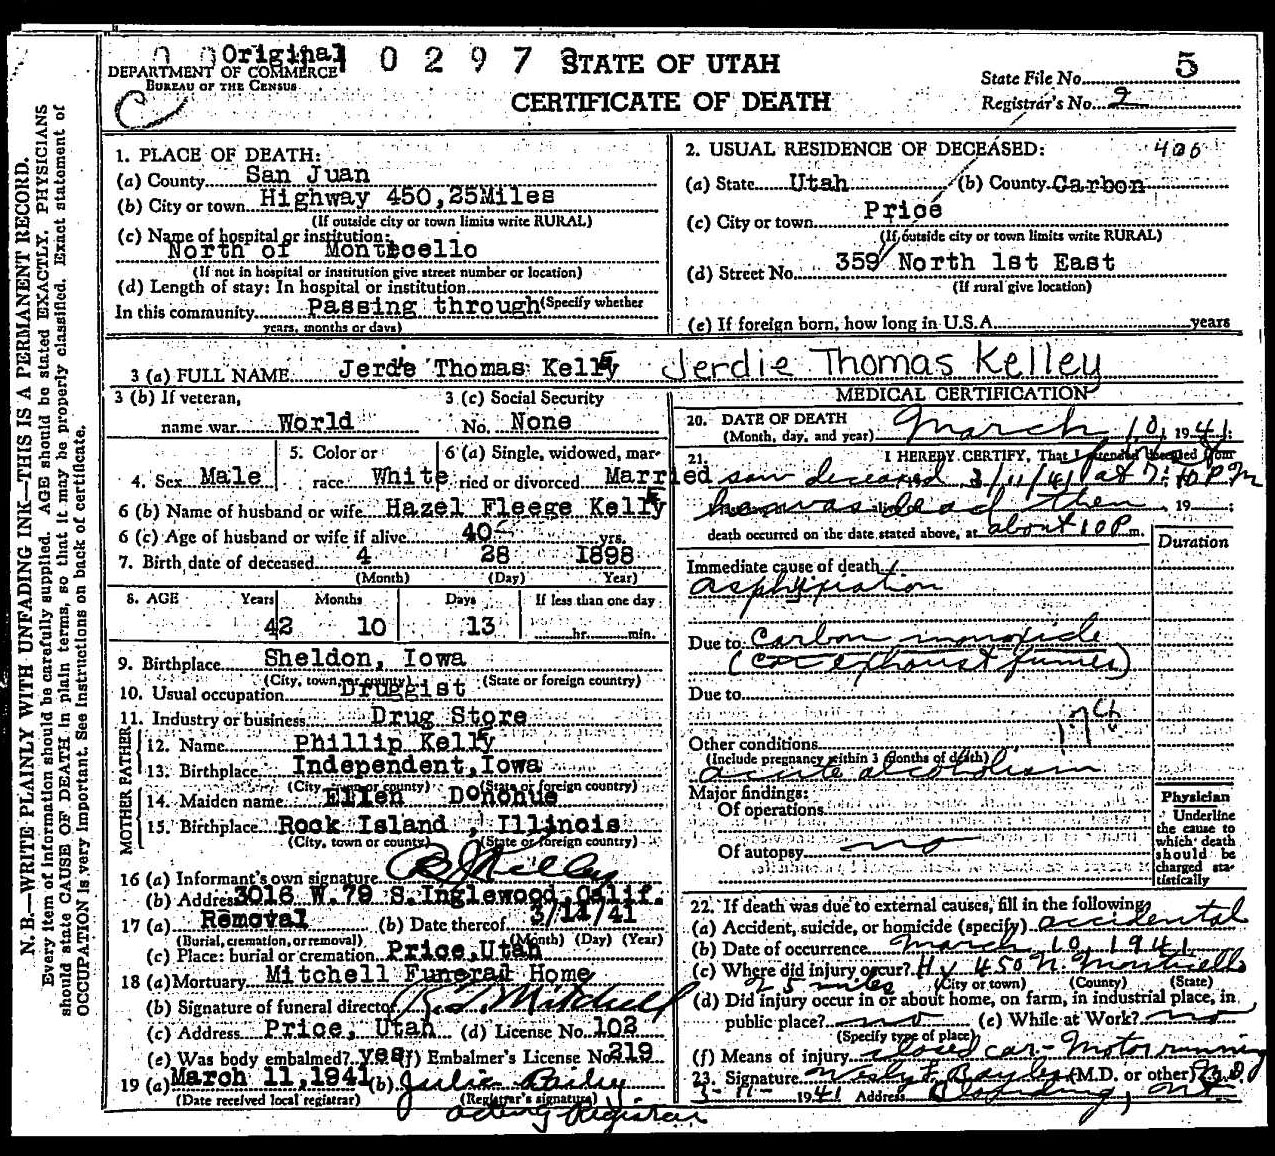 Original 0 2 9 7 3 STATE OF UTAH
DEPARTMENT OF COMMERCE
BUREAU OF THE CENSUS
CERTIFICATE OF DEATH
State File No. 5
Registrar's No. 2
N. B.—WRITE PLAINLY WITH UNFADING INK—THIS IS A PERMANENT RECORD.
Every item of information should be carefully supplied. AGE should be stated EXACTLY. PHYSICIANS
should state CAUSE OF DEATH in plain terms, so that it may be properly classified. Exact statement of
OCCUPATION is very important. See instructions on back of certificate.
1. PLACE OF DEATH:
(a) County San Juan
(b) City or town Highway 450, 25Miles
(If outside city or town limits write RURAL)
(c) Name of hospital or institution:
North of Monticello
(If not in hospital or institution give street number or location)
(d) Length of stay: In hospital or institution
In this community Passing through (Specify whether
years, months or days)
2. USUAL RESIDENCE OF DECEASED:
(a) State Utah (b) County Carbon
(c) City or town Price
(If outside city or town limits write RURAL)
(d) Street No. 359 North 1st East
(If rural give location)
(e) If foreign born, how long in U.S.A. years
3 (a) FULL NAME Jerdie Thomas Kelley Jerdie Thomas Kelley
3 (b) If veteran,
name war World
3 (c) Social Security
No. None
4. Sex Male
5. Color or
race White
6 (a) Single, widowed, mar-
ried or divorced Married
6 (b) Name of husband or wife Hazel Fleege Kelley
6 (c) Age of husband or wife if alive 40 yrs.
7. Birth date of deceased 4 28 1898
(Month) (Day) Year)
8. AGE Years Months Days If less than one day
42 10 13 hr. min.
9. Birthplace Sheldon, Iowa
(City, town or county) (State or foreign country)
10. Usual occupation Druggist
11. Industry or business Drug Store
FATHER
12. Name Phillip Kelley
13. Birthplace Independent, Iowa
(City, town or county) (State or foreign country)
MOTHER
14. Maiden name Ellen Donohue
15. Birthplace Rock Island, Illinois
(City, town or county) (State or foreign country)
16 (a) Informant's own signature Kelley
(b) Address 3016 W. 79 S. Inglewood, Calif.
17 (a) Removal (b) Date thereof 3/14/41
(Burial, cremation, or removal) (Month) (Day) (Year)
(c) Place: burial or cremation Price, Utah
18 (a) Mortuary Mitchell Funeral Home
(b) Signature of funeral director Mitchell
(c) Address Price, Utah (d) License No. 102
(e) Was body embalmed? yes (f) Embalmer's License No. 219
19 (a) March 11, 1941 (b) Julia Bailey
(Date received local registrar) (Registrar's signature)
acting Registrar
MEDICAL CERTIFICATION
20. DATE OF DEATH
(Month, day, and year) March 10, 1941
21. I HEREBY CERTIFY, That I attended deceased from
saw deceased 3/11/41 at 7:10 P M
he was dead then, 19
death occurred on the date stated above, at about 10 P m.
Duration
Immediate cause of death
asphyxiation
Due to Carbon monoxide
(car exhaust fumes)
Due to
Other conditions
(Include pregnancy within 3 months of death)
acute alcoholism
Major findings:
Of operations
Of autopsy no
Physician
Underline
the cause to
which death
should be
charged sta-
tistically
22. If death was due to external causes, fill in the following:
(a) Accident, suicide, or homicide (specify) accidental
(b) Date of occurrence March 10, 1941
(c) Where did injury occur? Hy 450 N. Monticello
25 miles (City or town) (County) (State)
(d) Did injury occur in or about home, on farm, in industrial place, in
public place? no (e) While at Work? no
(Specify type of place)
(f) Means of injury closed car - Motor running
23. Signature Bayles (M.D. or other)
3-11-1941 Address Blanding, Ut.